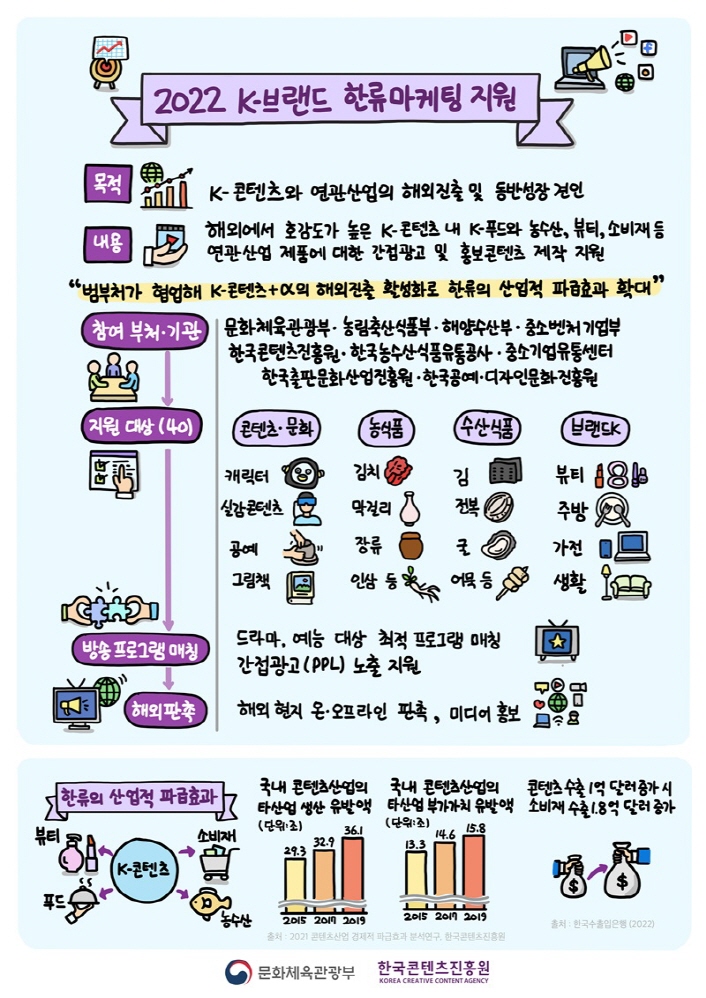 2022 K-브랜드 한류마케팅 지원
목적
K-콘텐츠와 연관산업의 해외진출 및 동반성장 견인
내용
해외에서 호감도가 높은 K-콘텐츠 내 K-푸드와 농수산, 뷰티, 소비재 등
연관산업 제품에 대한 간접광고 및 홍보콘텐츠 제작 지원
“범부처가 협업해 K-콘텐츠+α의 해외진출 활성화로 한류의 산업적 파급효과 확대”
참여 부처·기관
문화체육관광부·농림축산식품부·해양수산부·중소벤처기업부
한국콘텐츠진흥원·한국농수산식품유통공사·중소기업유통센터
한국출판문화산업진흥원·한국공예·디자인문화진흥원
지원 대상 (40)
콘텐츠·문화
농식품
수산식품
브랜드K
캐릭터
김치
김
뷰티
실감콘텐츠
막걸리
전복
주방
공예
장류
굴
가전
그림책
인삼 등
어묵 등
생활
방송 프로그램 매칭
드라마, 예능 대상 최적 프로그램 매칭
간접광고(PPL) 노출 지원
해외판촉
해외 현지 온·오프라인 판촉, 미디어 홍보
한류의 산업적 파급효과
뷰티
소비재
K-콘텐츠
푸드
농수산
국내 콘텐츠산업의
타산업 생산 유발액
(단위:조)
29.3
32.9
36.1
2015
2017
2019
국내 콘텐츠산업의
타산업 부가가치 유발액
(단위:조)
13.3
14.6
15.8
2015
2017
2019
출처 : 2021 콘텐츠산업 경제적 파급효과 분석연구. 한국콘텐츠진흥원
콘텐츠 수출 1억 달러 증가 시
소비재 수출 1.8억 달러 증가
$
$
출처 : 한국수출입은행 (2022)
문화체육관광부
한국콘텐츠진흥원
KOREA CREATIVE CONTENT AGENCY